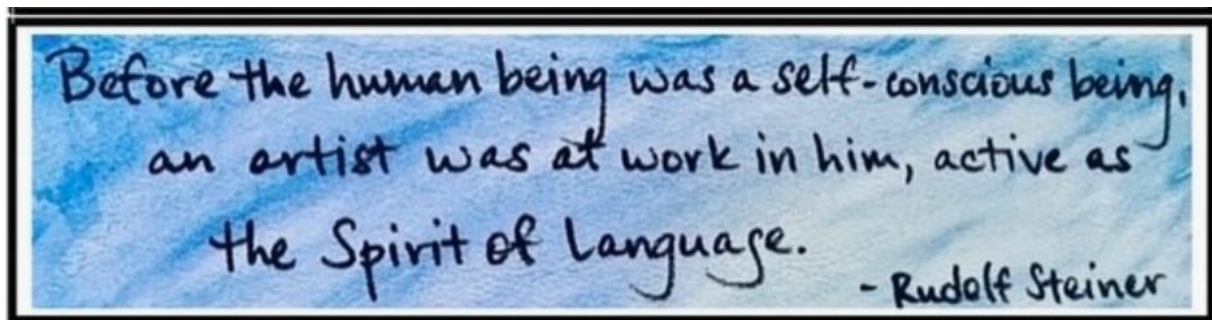 Before the human being was a self-conscious being,
an artist was at work in him, active as
the Spirit of Language.
- Rudolf Steiner